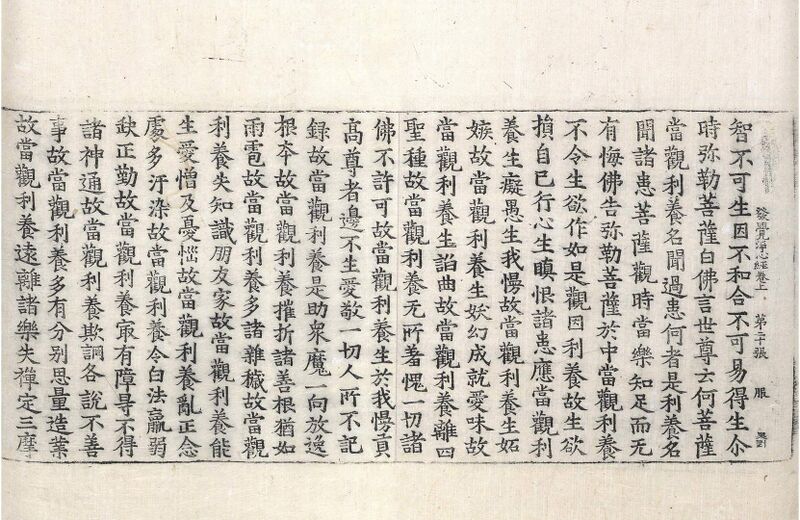 發覺淨心經卷上 第二十張 服
智不可生因不和合不可易得生尒
時弥勒菩薩白佛言世尊云何菩薩
當觀利養名聞過患何者是利養名
聞諸患菩薩觀時當樂知足而无
有悔佛告弥勒菩薩於中當觀利養
不令生欲作如是觀因利養故生欲
損自已行心生瞋恨諸患應當觀利
養生癡愚生我慢故當觀利養生妬
嫉故當觀利養生妖幻成就愛味故
當觀利養生諂曲故當觀利養離四
聖種故當觀利養无所著愧一切諸
佛不許可故當觀利養生於我慢貢
髙尊者邊不生愛敬一切人所不記
錄故當觀利養是助衆魔一向放逸
根夲故當觀利養摧折諸善根猶如
雨雹故當觀利養多諸雜穢故當觀
利養失知識朋友家故當觀利養能
生愛憎及憂惱故當觀利養亂正念
處多汙染故當觀利養令白法羸弱
缺正勤故當觀利養㝡有障㝵不得
諸神通故當觀利養欺誷各說不善
事故當觀利養多有分别思量造業
故當觀利養遠離諸樂失禪定三摩